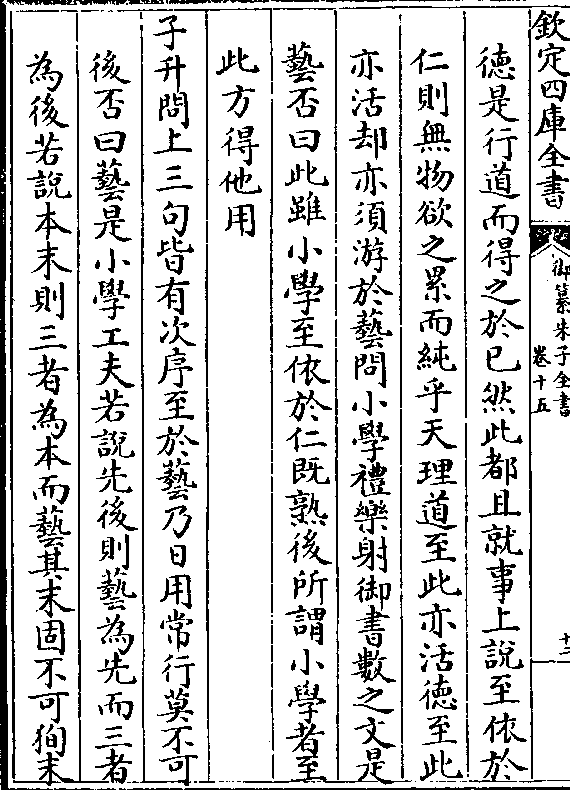 欽定四庫全書
御纂朱子全書
卷十五
十二
德是行道而得之於已然此都且就事上說至依於
仁則無物欲之累而純乎天理道至此亦活德至此
亦活却亦須游於藝問小學禮樂射御書數之文是
藝否曰此雖小學至依於仁既熟後所謂小學者至
此方得他用
子升問上三句皆有次序至於藝乃日用常行莫不可
後否曰藝是小學工夫若說先後則藝為先而三者
為後若說本末則三者為本而藝其末固不可狥末